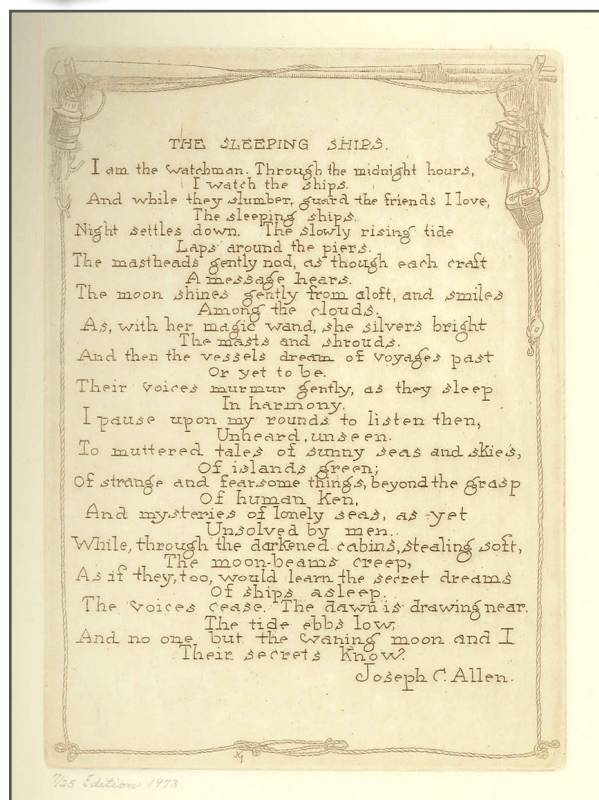 THE SLEEPING SHIPS.
I am the watchman. Through the midnight hours,
I watch the ships.
And while they slumber, guard the friends I love,
The sleeping ships.
Night settles down. The slowly rising tide
Laps around the piers.
The mastheads gently nod, as though each craft
A message hears.
The moon shines gently from aloft, and smiles
Among the clouds.
As, with her magic wand, she silvers bright
The masts and shrouds.
And then the vessels dream of voyages past
Or yet to be.
Their voices murmur gently, as they sleep
In harmony.
I pause upon my rounds to listen then,
Unheard, unseen.
To muttered tales of sunny seas and skies,
Of islands green;
Of strange and fearsome things, beyond the grasp
Of human Ken,
And mysteries of lonely seas, as yet
Unsolved by men.
While, through the darkened cabins, stealing soft,
The moon-beams creep,
As if they, too, would learn the secret dreams
Of ships asleep.
The voices cease. The dawn is drawing near.
The tide ebbs low;
And no one but the waning moon and I
Their secrets know.
Joseph C. Allen.
7/25 Edition 1973